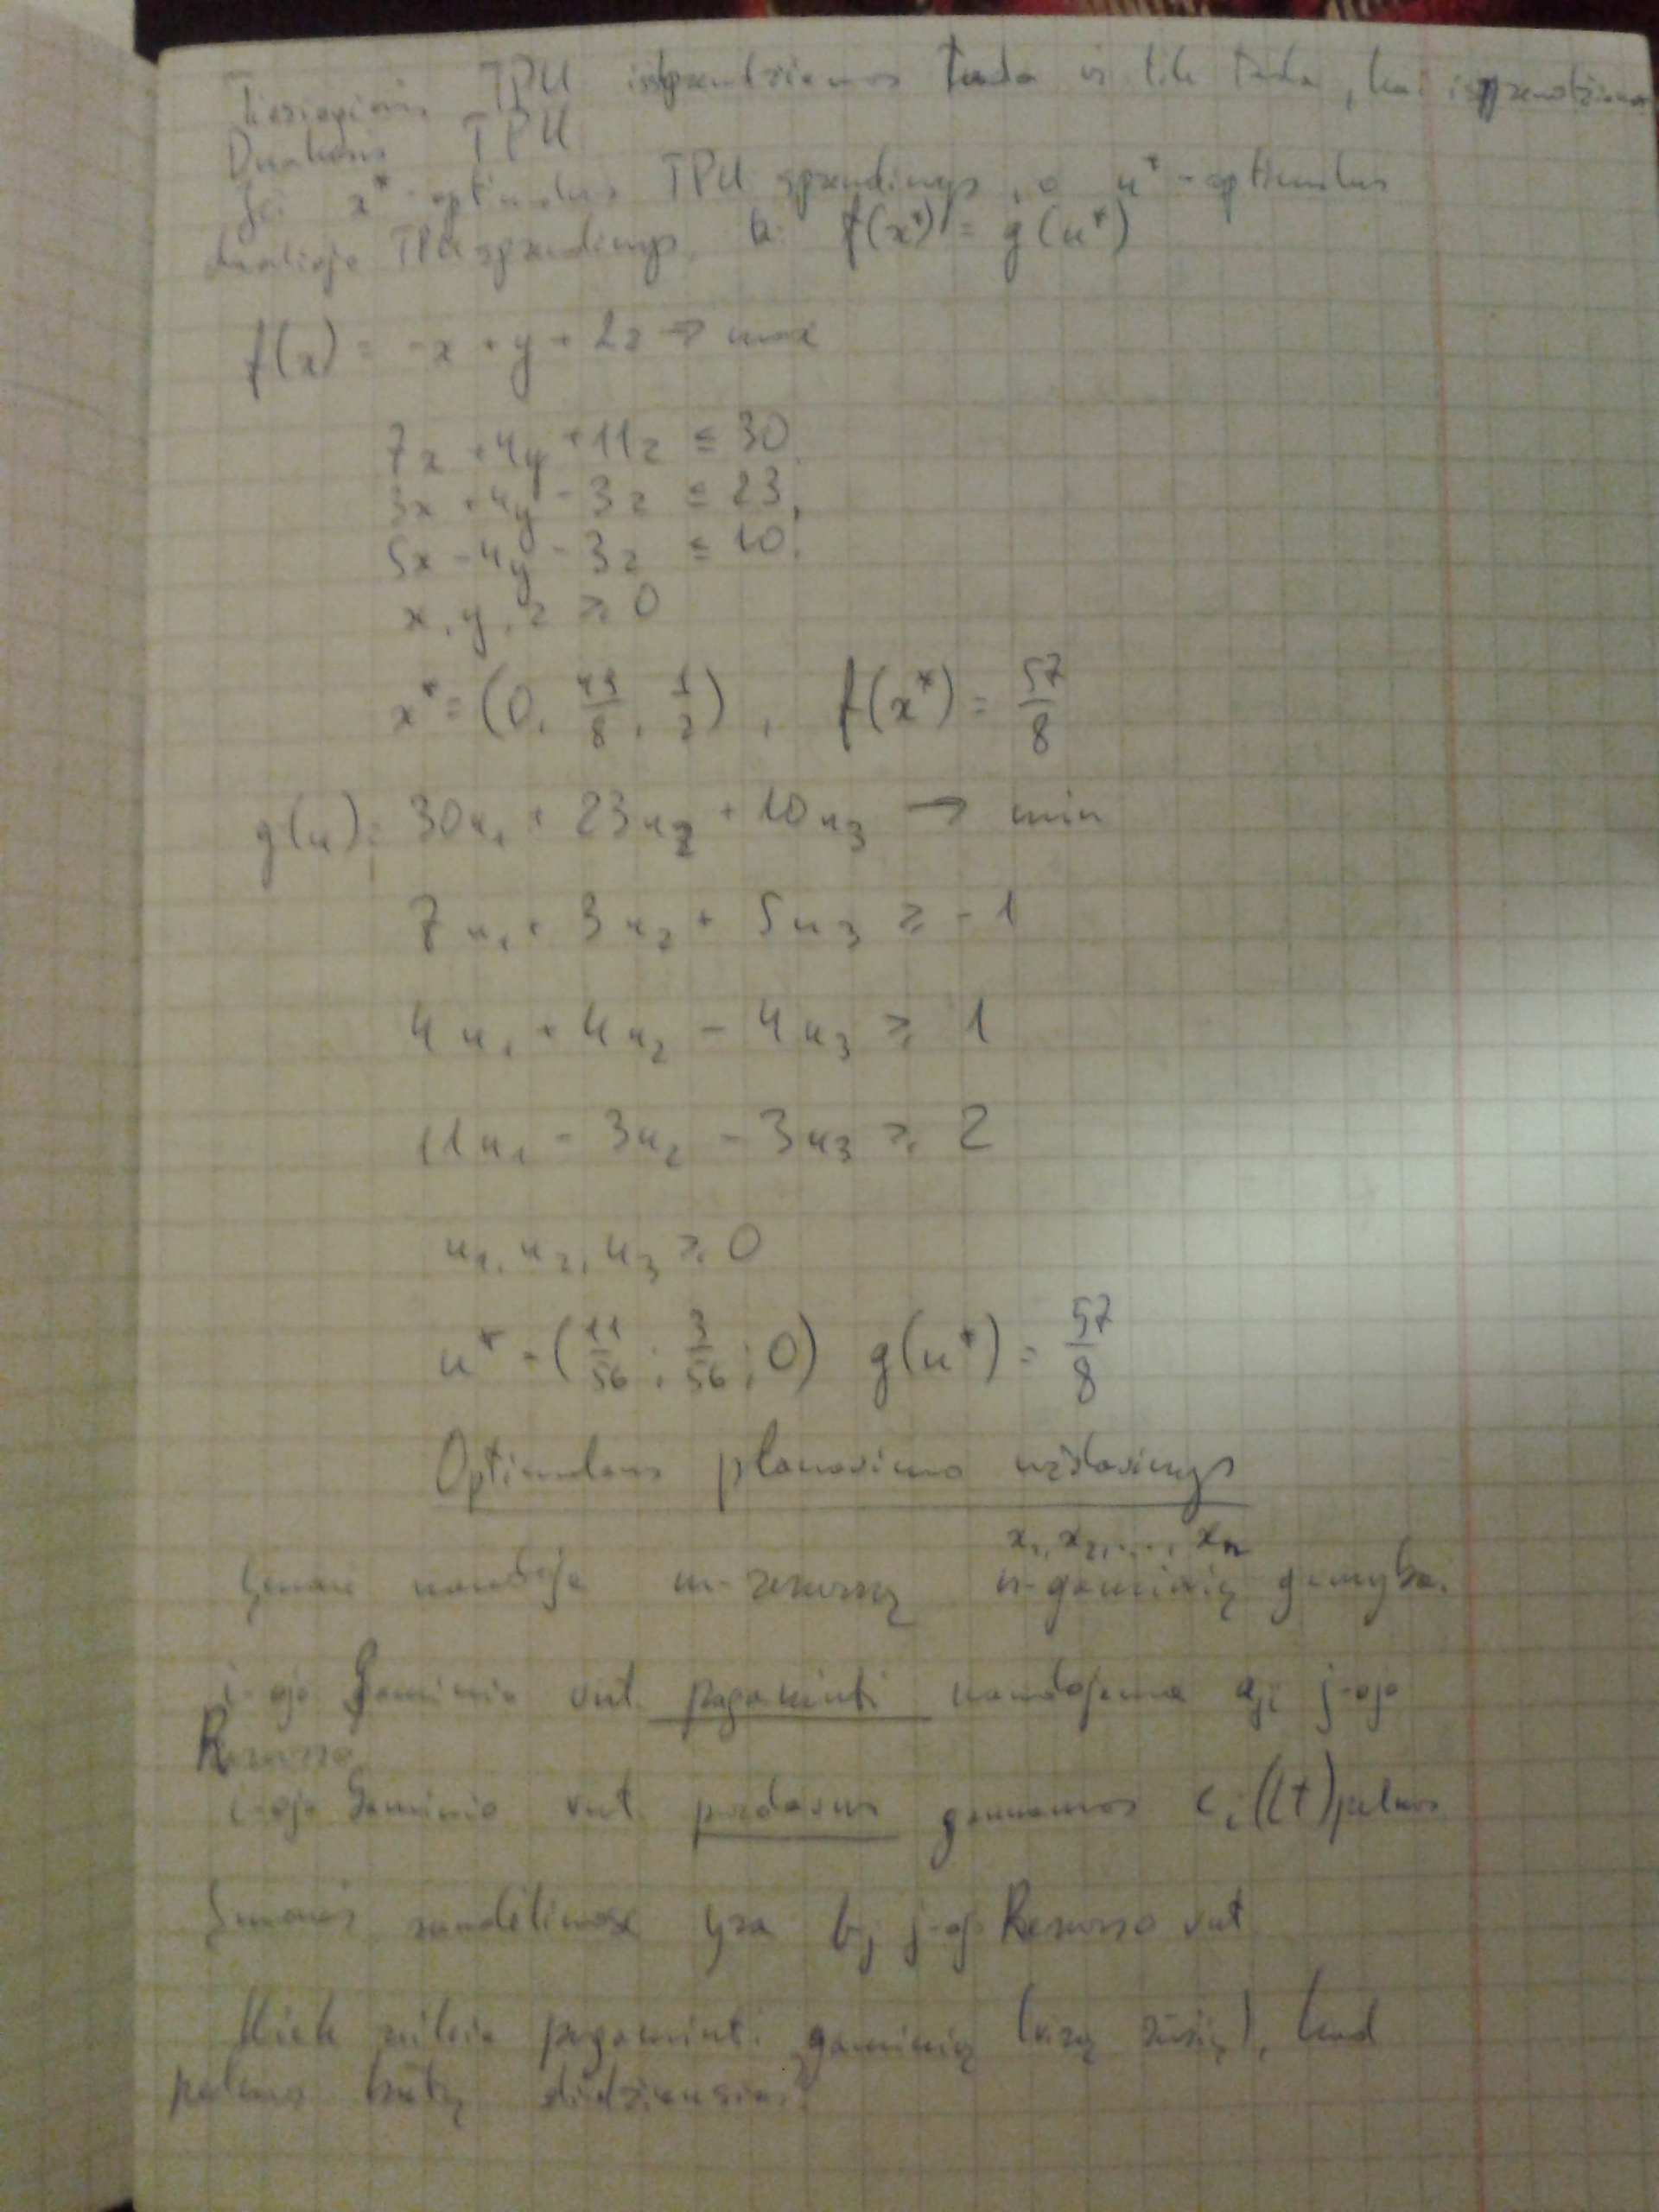 Tiesioginis TPU išsprendžiamas tada ir tik tada, kai išsprendžiamas
Dualusis TPU
Jei x* - optimalus TPU sprendinys, o u* - optimalus
dualiojo TPU sprendinys, tai f(x*) = g(u*)
f(x) = -x + y + 2z → max
7x + 4y + 11z ≤ 30,
3x + 4y - 3z ≤ 23,
5x - 4y - 3z ≤ 10.
x, y, z ≥ 0
x* = (0, 49/8, 1/2), f(x*) = 57/8
g(u): 30u₁ + 23u₂ + 10u₃ → min
7u₁ + 3u₂ + 5u₃ ≥ -1
4u₁ + 4u₂ - 4u₃ ≥ 1
11u₁ - 3u₂ - 3u₃ ≥ 2
u₁, u₂, u₃ ≥ 0
u* = (11/56; 3/56; 0) g(u*) = 57/8
Optimalaus planavimo uždavinys
x₁, x₂, ..., xₙ
Įmonė naudoja m-resursų n-gaminių gamybai.
i-ojo Gaminio vnt. pagaminti naudojama aji j-ojo
Resurso
i-ojo Gaminio vnt. pardavus gaunamas ci (Lt) pelnas
Įmonės sandėliuose yra bj j-ojo Resurso vnt
Kiek reikia pagaminti gaminių (visų rūšių), kad
pelnas būtų didžiausias?